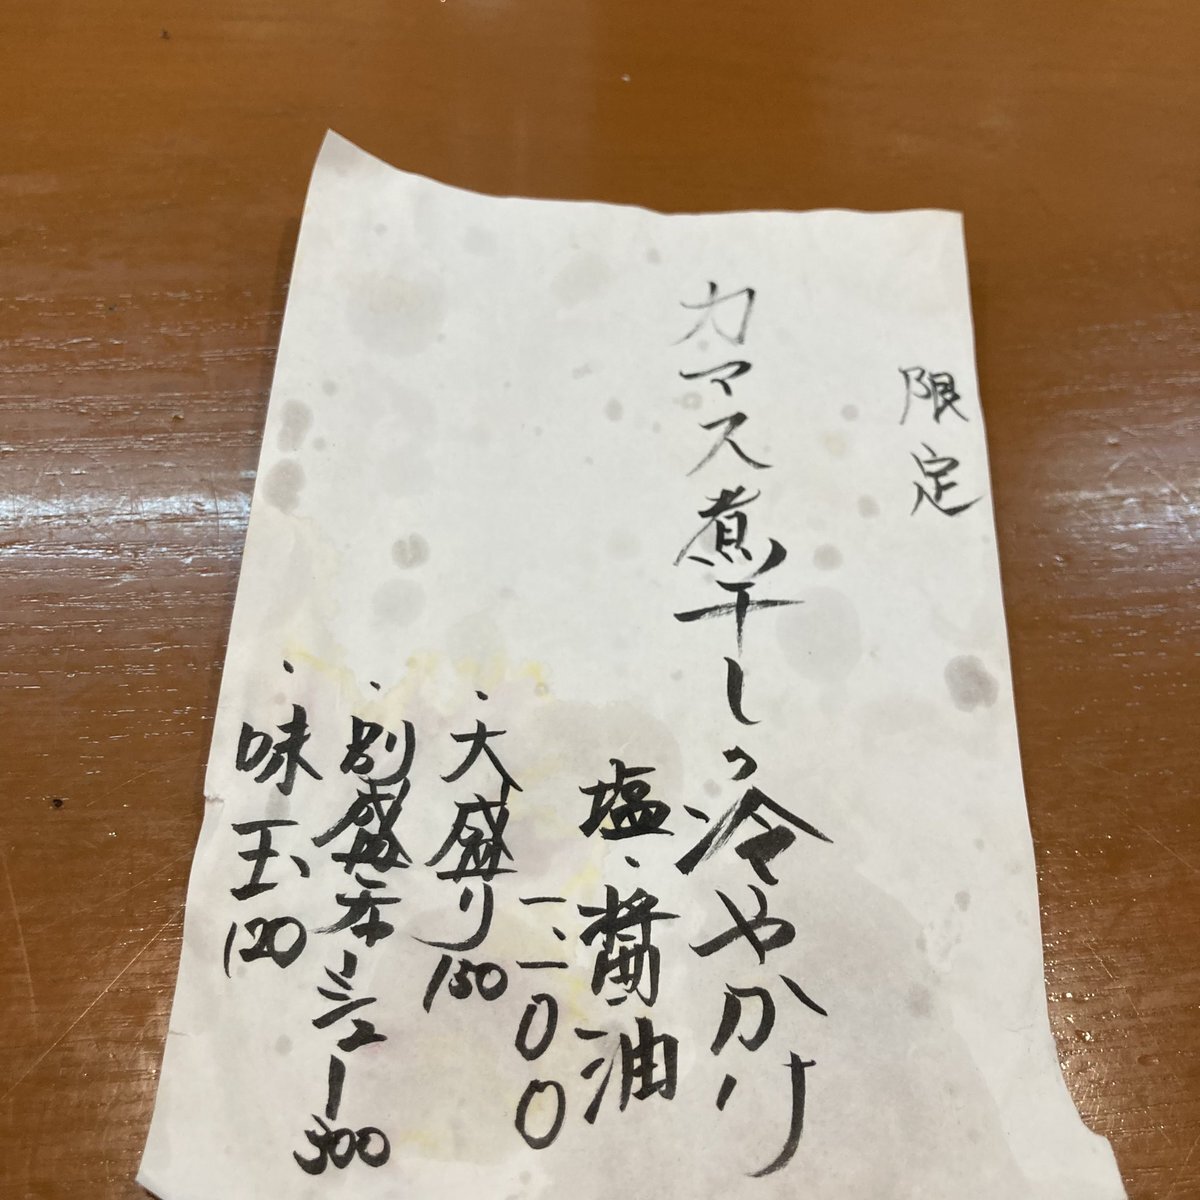 限定
カマス煮干しの冷やかけ
塩、醤油
一、一〇〇
・大盛り150
・別盛チャーシュー300
・味玉120